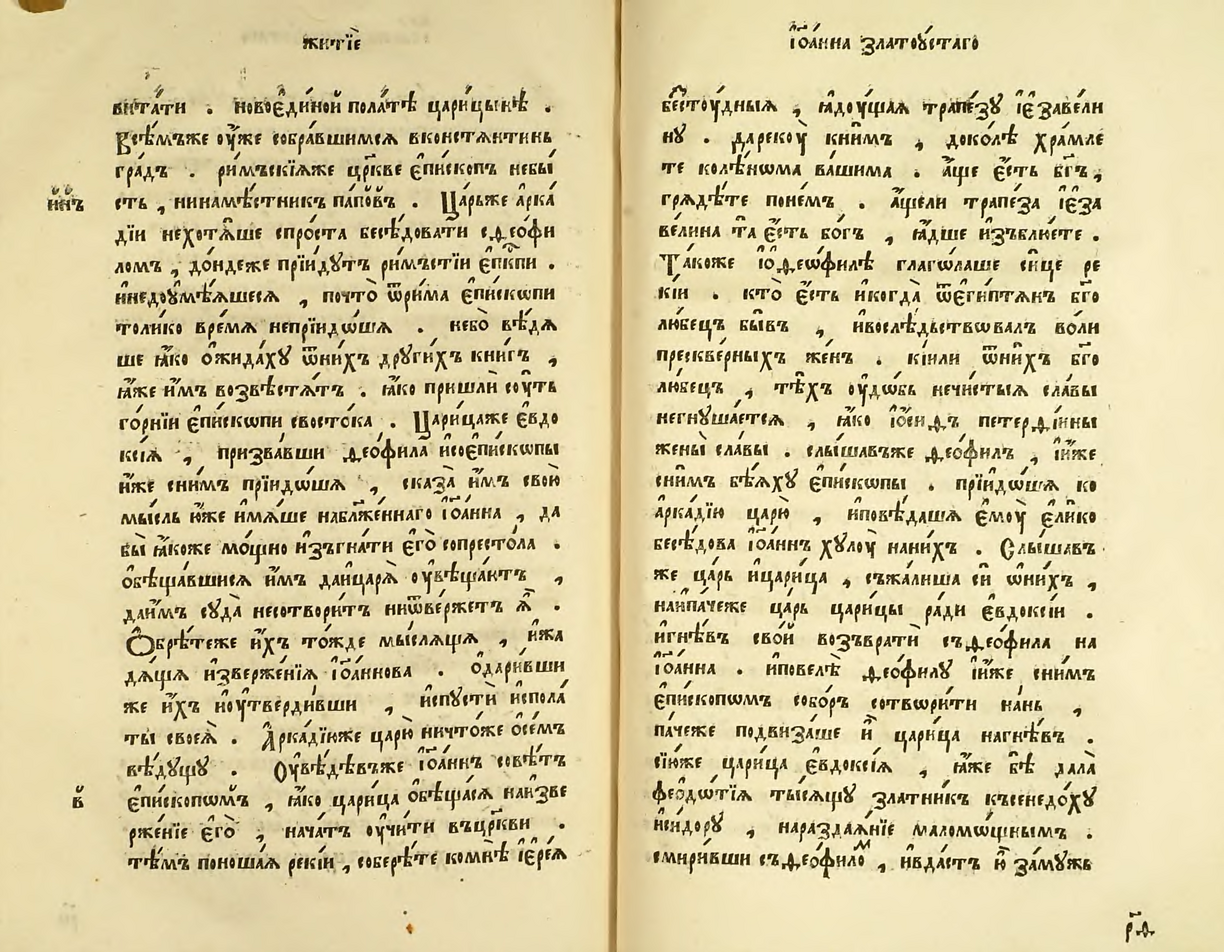 житїе
витати . новоединой полатѣ царицынѣ .
Всѣмъже оуже собравшимся вконстянтинь
градъ . римъскїяже цркве епископъ небы
сть , нинамѣстникъ паповъ . Царьже арка
дїи нехотѧше спроста бесѣдовати сѳеофи
ломъ , дондеже прїидутъ римъстїи епкпи .
инедоумѣяшеся , почто ѿрима епископи
толико время непрїидоша . небо вѣдя
ше ꙗко ожидаху ѿнихъ другихъ книгъ ,
ꙗже имъ возвѣстятъ . ꙗко пришли соуть
горнїи епископи свостока . Царицаже евдо
ксїя , призвавши ѳеофила исоепископы
иже снимъ прїидоша , сказа имъ свою
мысль юже имяше наблженнаго їоанна , да
бы ꙗкоже мощно изъгнати его сопрестола .
обѣщавшися имъ даицаря оувѣщаютъ ,
даимъ суда несотворитъ ниѿвержетъ ѧ .
Обрѣтеже ихъ тожде мыслящя , ижа
дящя изверженїя їоаннова . одаривши
же ихъ иоутвердивши , испусти исполѧ
ты своеѧ . Аркадїюже царю ничтоже осемъ
вѣдущу . Оувѣдѣвъже їоаннъ совѣтъ
епископомъ , ꙗко царица обѣщася наизве
рженїе его , начатъ оучити въцркви .
тѣмъ поношая рекїи , соберѣте комнѣ їерея
инъ
в҃
їоанна златоустаго
бестоудныя , ꙗдоущая трапезу їезавели
ну . дареку книмъ , доколѣ храмле
те колѣнома вашима . аще есть бгъ ,
грядѣте понемъ . ащели трапеза їеза
велина та есть богъ , ꙗдше изъблюете .
Такоже їоѳеофилѣ глаголаше сице ре
кїи . кто есть иногда ѿегиптянъ бго
любецъ бывъ , ивослѣдьствовалъ воли
прескверныхъ женъ . кїили ѿнихъ бго
любецъ , тѣхъ оудобь нечистыя славы
негнушается , ꙗко їосифъ петерфїины
жены славы . слышавъже ѳеофилъ , їиже
снимъ бѣяху епископы . прїидоша ко
аркадїю царю , иповѣдаша емоу елико
бесѣдова їоаннъ хулоу наних . Слышавъ
же царь ицарица , съжалиша си ѡнихъ ,
наипачеже царь царицы ради евдоксїи .
игнѣвъ свой возъврати съѳеофила на
їоанна . иповелѣ ѳеофилу їиже снимъ
епископомъ соборъ сотворити нань ,
пачеже подвизаше и царица нагнѣвъ .
сїюже царица евдоксїя , ꙗже бѣ дала
феодотїя тысящу златникъ къменедоху
исидору , нараздаянїе маломощнымъ .
смиривши съѳеофиломъ , ивдастъ ю замужь
рѳ